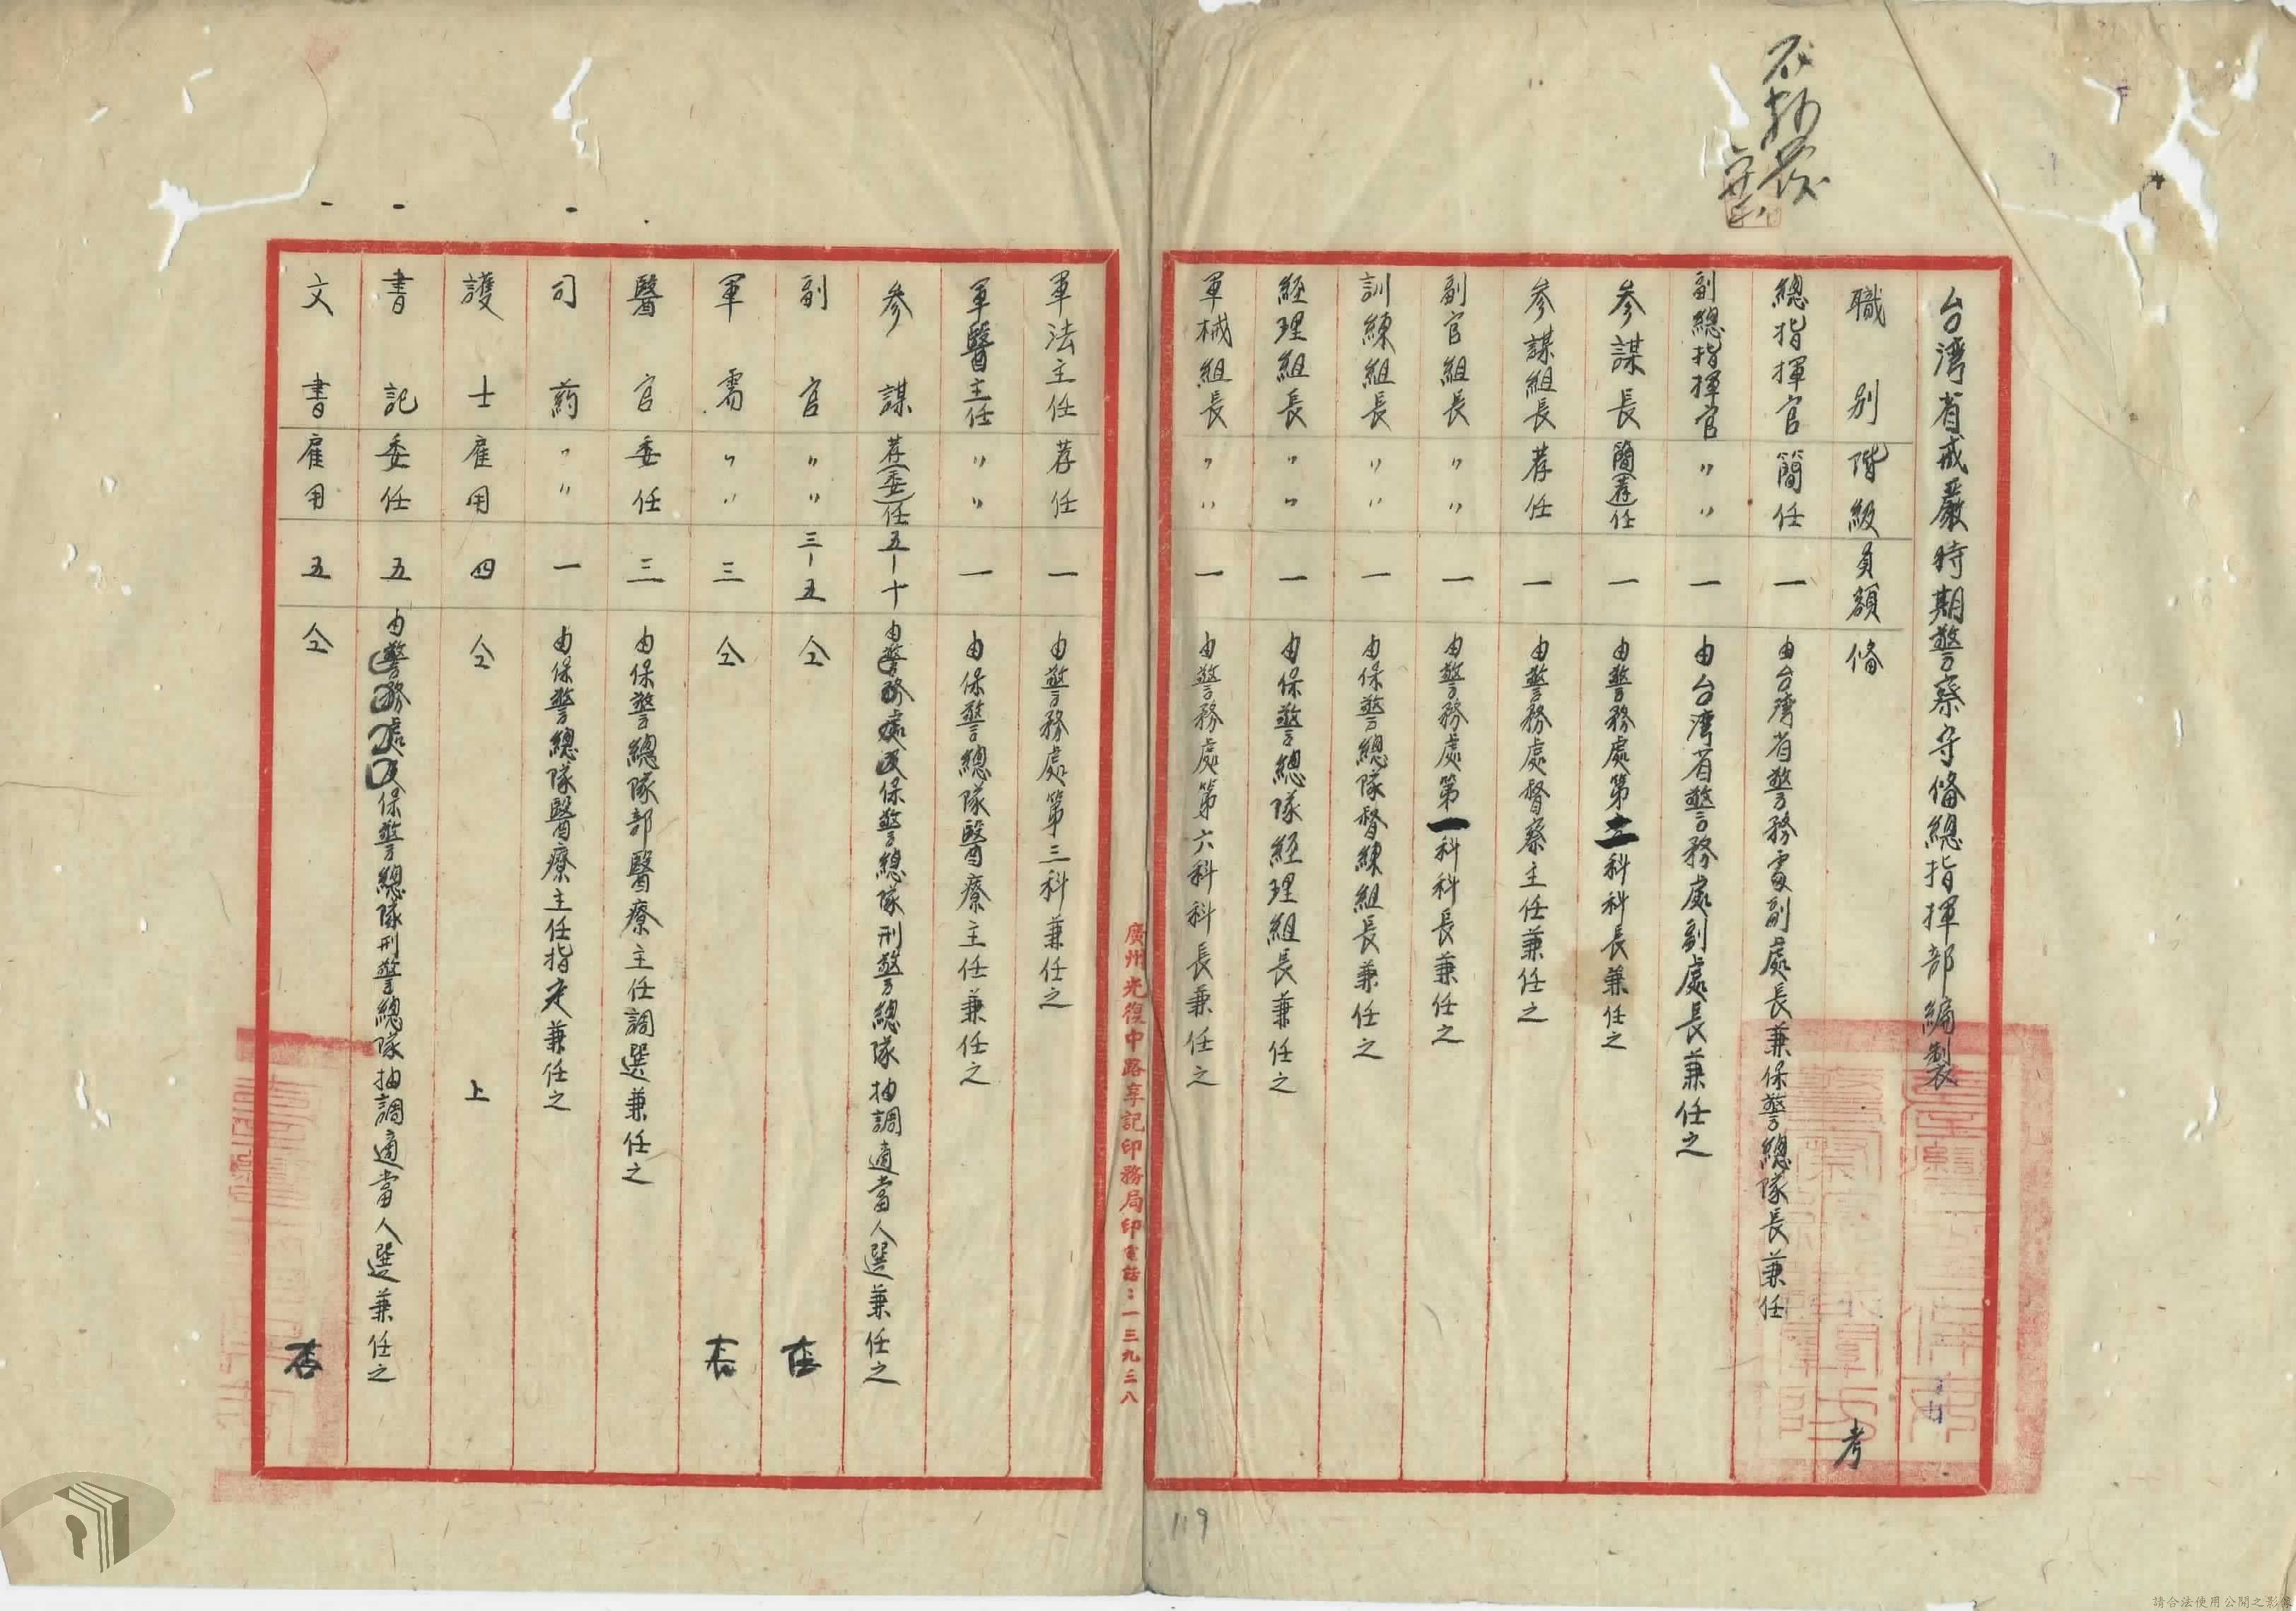 不抄發
台湾省戒嚴時期警察守備總指揮部編製
職別 階級 員額 備考
總指揮官 簡任 一 由台湾省警務處副處長兼保警總隊長兼任
副總指揮官 〃〃 一 由台湾省警務處副處長兼任之
參謀長 簡(荐)任 一 由警務處第二科科長兼任之
參謀組長 荐任 一 由警務處督察主任兼任之
副官組長 〃〃 一 由警務處第一科科長兼任之
訓練組長 〃〃 一 由保警總隊督練組長兼任之
經理組長 〃〃 一 由保警總隊經理組長兼任之
軍械組長 〃〃 一 由警務處第六科科長兼任之
119
廣州光復中路享記印務局印電話:一三九三八
軍法主任 荐任 一 由警務處第三科兼任之
軍醫主任 〃〃 一 由保警總隊醫療主任兼任之
參謀 荐(委)任 五-十 由警務處及保警總隊刑警總隊抽調適當人選兼任之
副官 〃〃 三-五 仝右
軍需 〃〃 三 仝右
醫官 委任 三 由保警總隊部醫療主任調選兼任之
司葯 〃〃 一 由保警總隊醫療主任指定兼任之
護士 雇用 四 仝上
書記 委任 五 由警務處及保警總隊刑警總隊抽調適當人選兼任之
文書 雇用 五 仝右
請合法使用公開之影像